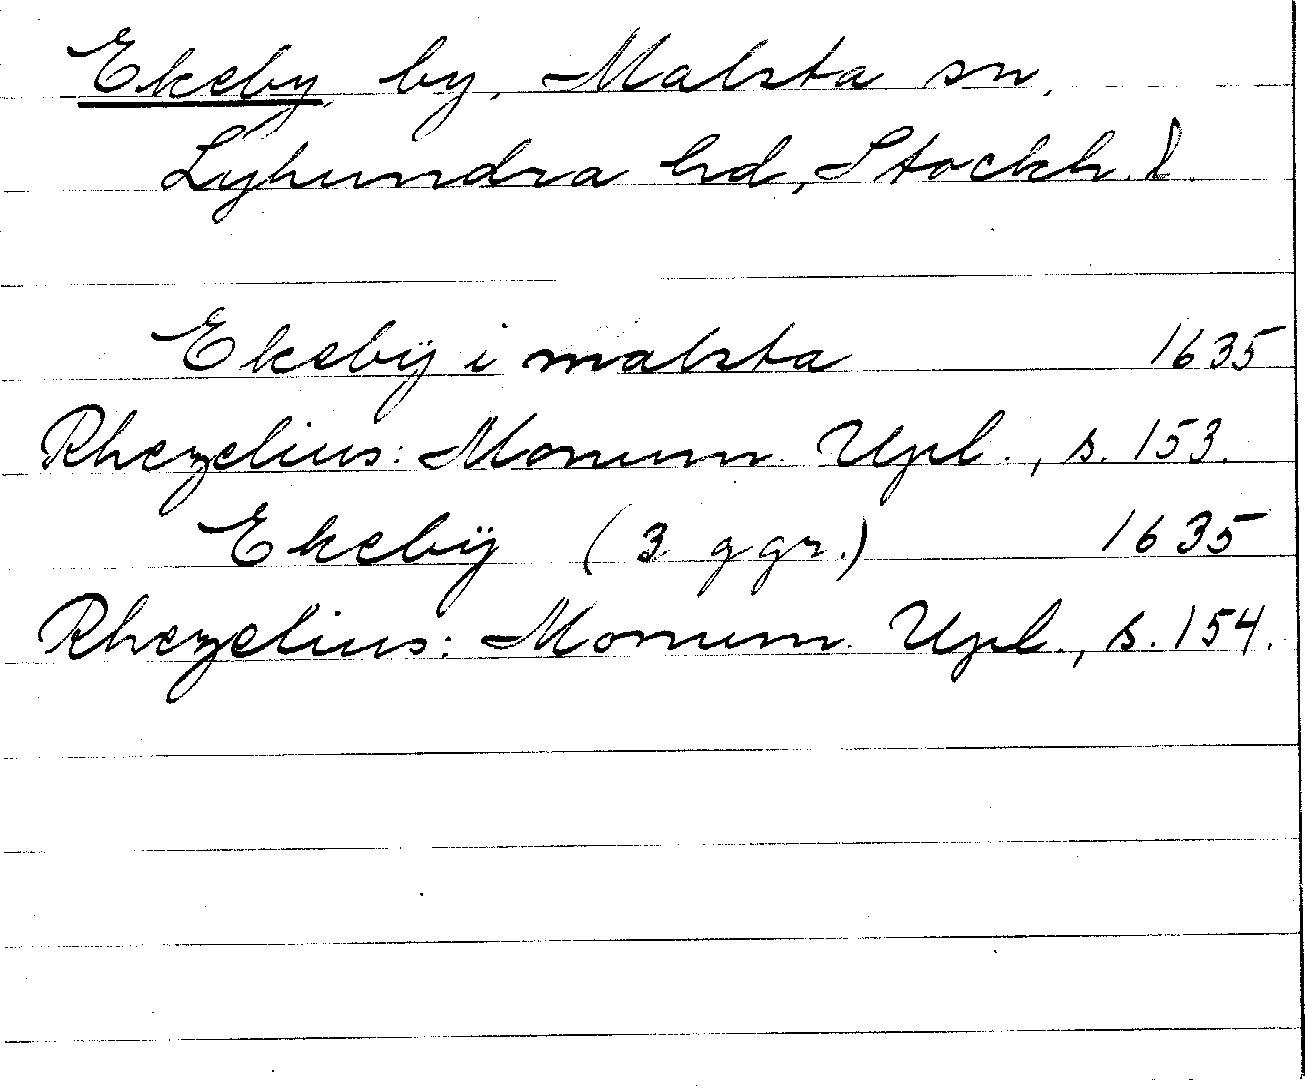 Ekeby, by, Malsta sn,
Lyhundra hd, Stockh. l.
Ekebÿ i malsta 1635
Rhezelius: Monum. Upl., s. 153.
Ekebÿ (3 ggr.) 1635
Rhezelius: Monum. Upl., s. 154.